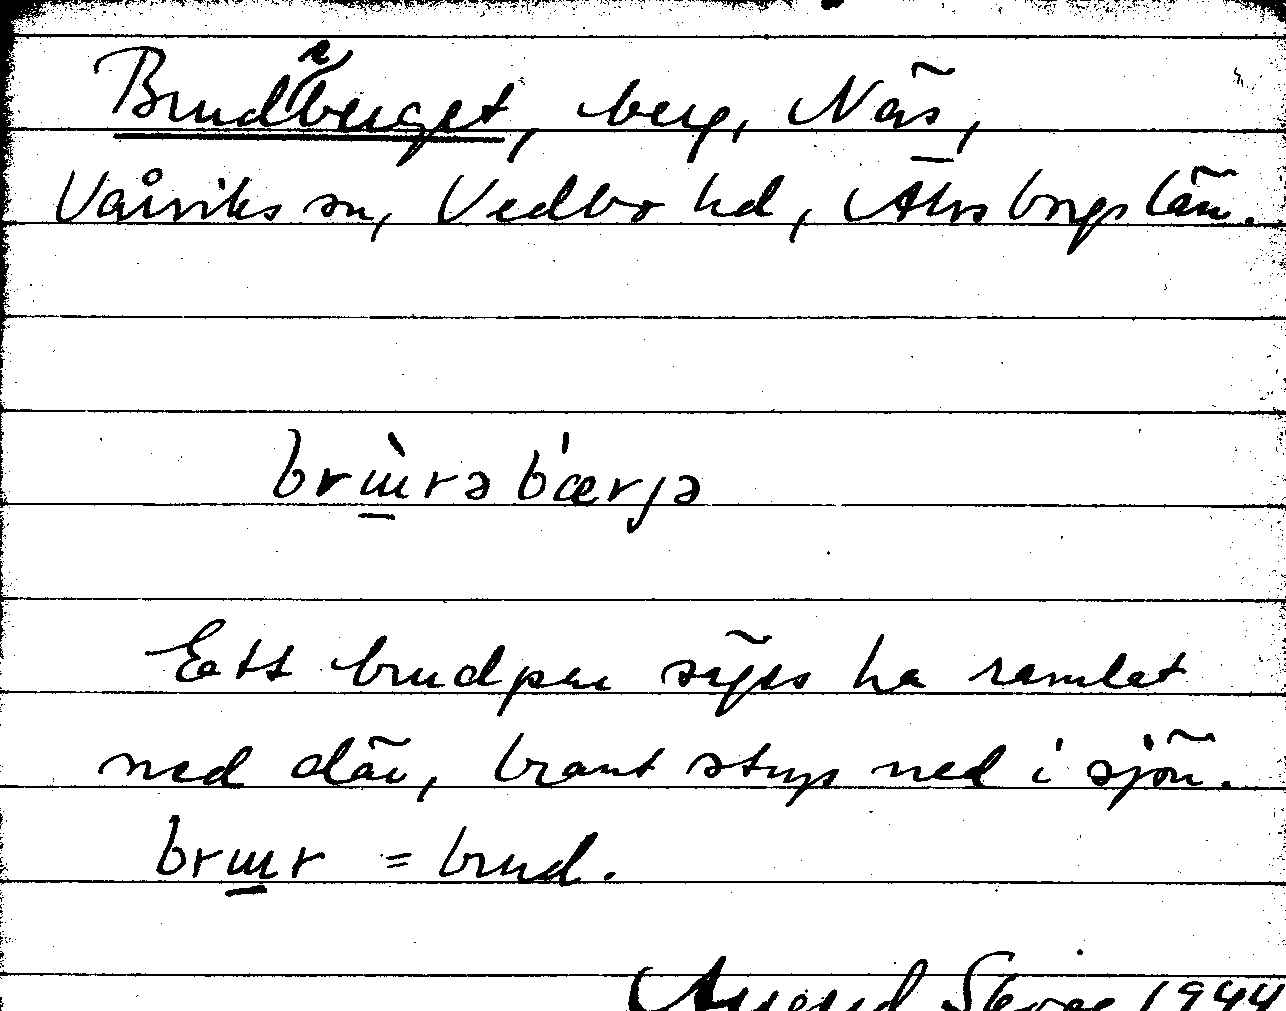 Brudeberget, berg, Näs,
Vårviks sn, Vedbo hd, Älvsborgs län.
brɯ̀rə bˈærjə
Ett brudpar säges ha ramlat
ned där, brant stup ned i sjön.
brɯr = brud.
1944